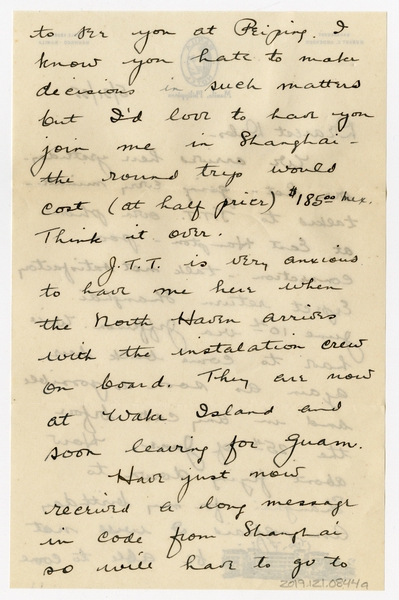 to see you at Peiping. I
know you hate to make
decisions in such matters
but I'd love to have you
join me in Shanghai -
the round trip would
cost (at half price) $185.00 Mex.
Think it over.
J.T.T. is very anxious
to have me here when
the North Haven arrives
with the instalation crew
on board. They are now
at Wake Island and
soon leaving for Guam.
Have just now
received a long message
in code from Shanghai
so will have to go to
2019.121.0844a